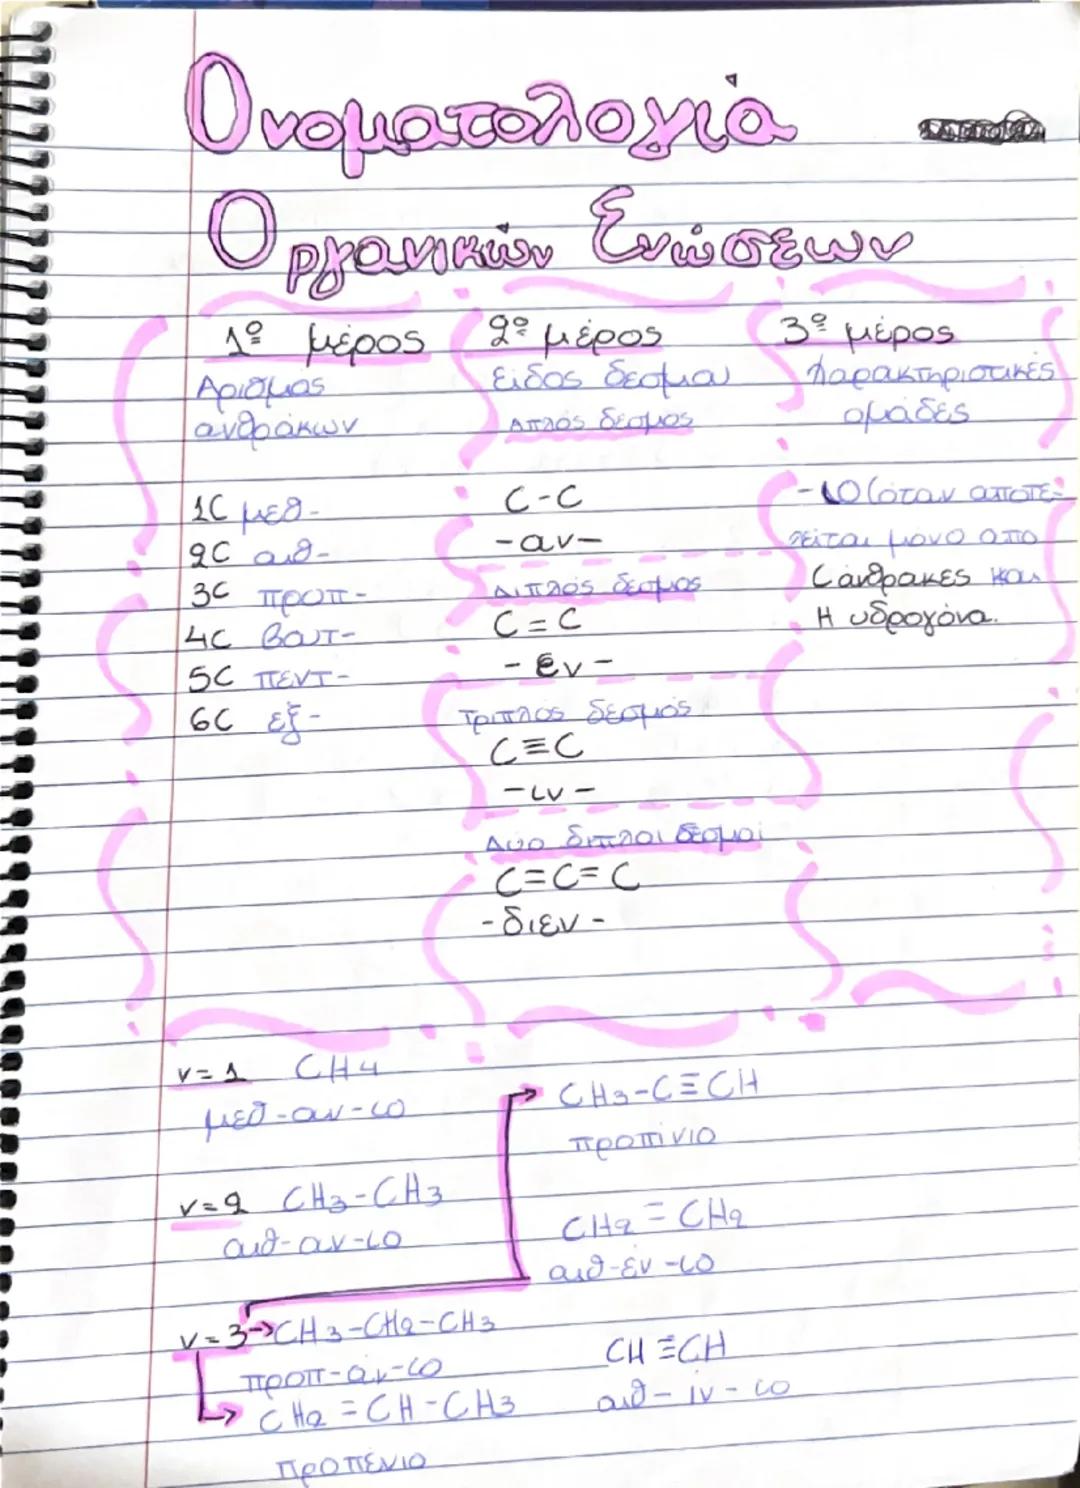 Ονοματολογία
Οργανικών Ενώσεων
1º μέρος
Αριθμός
ανθράκων
1C μεθ-
2C αιθ-
3C προπ-
4C βουτ-
5C πεντ-
6C εξ-
2º μέρος
Είδος δεσμού
Απλός δεσμός
C-C
-αν-
Διπλός δεσμός
C=C
-εν-
Τριπλός δεσμός
C≡C
-ιν-
Δύο διπλοί δεσμοί
C=C=C
-διεν-
3º μέρος
Χαρακτηριστικές
ομάδες
-ιο (όταν αποτε-
λείται μόνο απο
C άνθρακες και
Η υδρογόνα.
ν=1 CH4
μεθ-αν-ιο
ν=2 CH3-CH3
αιθ-αν-ιο
ν=3→CH3-CH2-CH3
προπ-άν-ιο
CH2=CH-CH3
προπένιο
CH3-C≡CH
προπίνιο
CH2=CH2
αιθ-έν-ιο
CH≡CH
αιθ-ίν-ιο